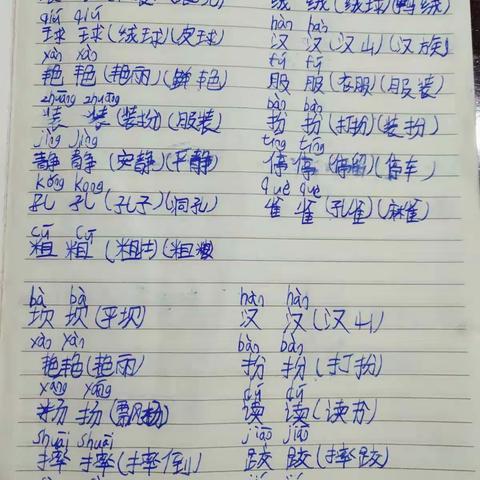 qiú qiú hàn hàn
球 球(绒球)(皮球) 汉 汉(汉山)(汉族)
yàn yàn fú fú
艳 艳(艳雨)(鲜艳) 服 服(衣服)(服装)
zhuāng zhuāng bàn bàn
装 装(装扮)(服装) 扮 扮(打扮)(装扮)
jìng jìng tíng tíng
静 静(安静)(平静) 停 停(停留)(停车)
kǒng kǒng què què
孔 孔(孔子)(洞孔) 雀 雀(孔雀)(麻雀)
cū cū
粗 粗(粗壮)(粗
bà bà hàn hàn
坝 坝(平坝) 汉 汉(汉山)
yàn yàn bàn bàn
艳艳(艳雨) 扮 扮(打扮)
yáng yáng dú dú
扬 扬(飘扬) 读 读(读书)
shuāi shuāi jiāo jiāo
摔 摔(摔倒) 跤 跤(摔跤)